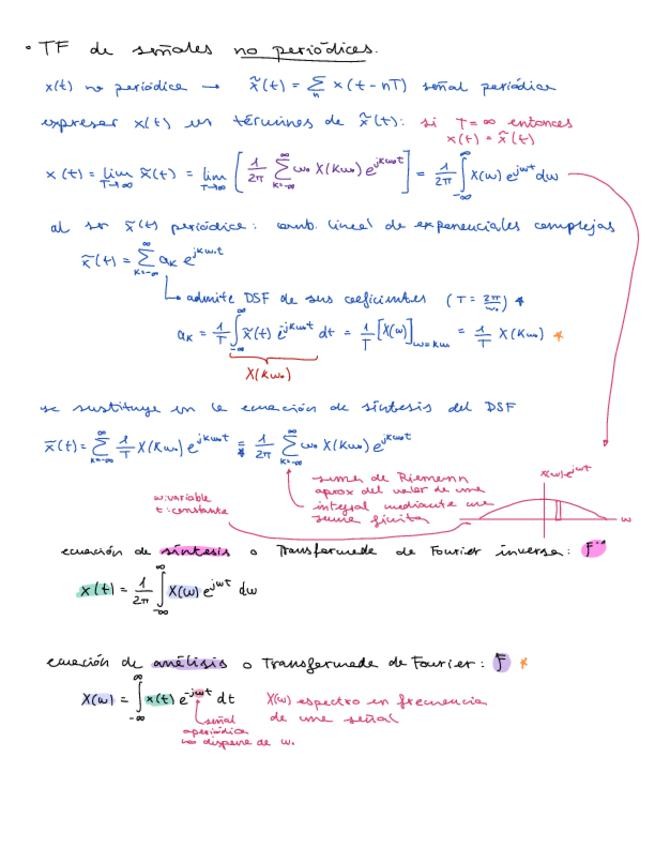 • TF de señales no periódicas.
x(t) no periódica → x̃(t) = Σₙ x(t-nT) señal periódica
expresar x(t) en términos de x̃(t): si T=∞ entonces
x(t) = x̃(t)
x(t) = lim_{T→∞} x̃(t) = lim_{T→∞} [ 1/2π Σ_{k=-∞}^{∞} ω₀ X(kω₀) e^{jkω₀t} ] = 1/2π ∫_{-∞}^{∞} X(ω) e^{jωt} dω
al ser x̃(t) periódica: comb. lineal de exponenciales complejas
x̃(t) = Σ_{k=-∞}^{∞} a_k e^{jkω₀t}
admite DSF de sus coeficientes (T = 2π/ω₀) *
a_k = 1/T ∫_{-∞}^{∞} x̃(t) e^{jkω₀t} dt = 1/T [X(ω)]_{ω=kω₀} = 1/T X(kω₀) *
X(kω₀)
se sustituye en la ecuación de síntesis del DSF
x̃(t) = Σ_{k=-∞}^{∞} 1/T X(kω₀) e^{jkω₀t} =* 1/2π Σ_{k=-∞}^{∞} ω₀ X(kω₀) e^{jkω₀t}
suma de Riemann
aprox del valor de una
integral mediante una
suma finita
ω: variable
t: constante
X(ω)·e^{jωt}
ω
ecuación de síntesis o Transformada de Fourier inversa: F⁻¹
x(t) = 1/2π ∫_{-∞}^{∞} X(ω) e^{jωt} dω
ecuación de análisis o Transformada de Fourier: F *
X(ω) = ∫_{-∞}^{∞} x(t) e^{-jωt} dt X(ω) espectro en frecuencia
de una señal
señal
aperiódica
no dispone de ω₀